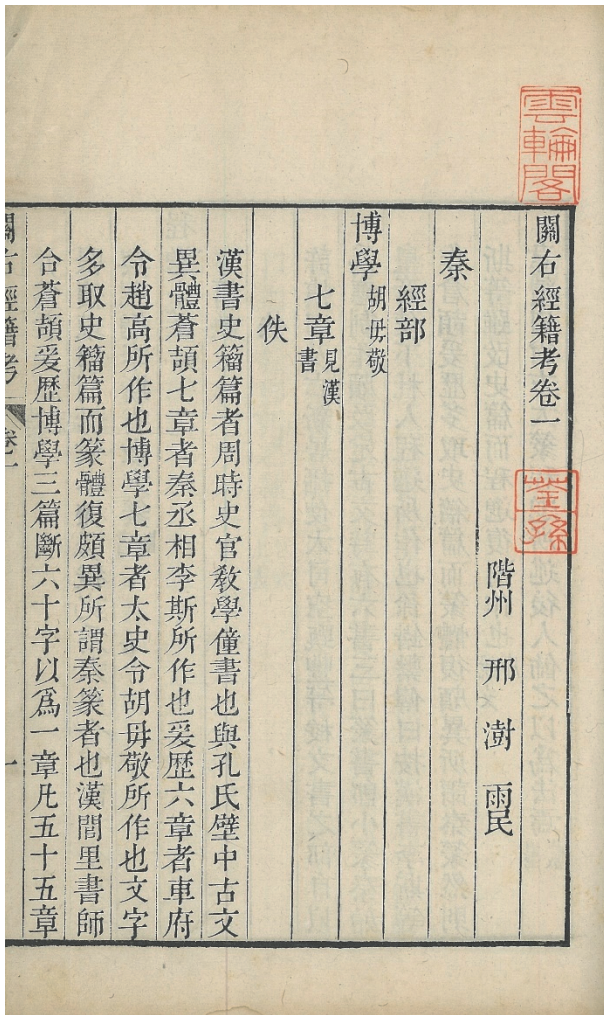 雲輪閣
荃孫
關右經籍考卷一
階州 邢澍 雨民
秦
經部
博學 胡毋敬
七章 見漢書
佚
漢書史籀篇者周時史官敎學僮書也與孔氏壁中古文
異體蒼頡七章者秦丞相李斯所作也爰歷六章者車府
令趙高所作也博學七章者太史令胡毋敬所作也文字
多取史籀篇而篆體復頗異所謂秦篆者也漢閭里書師
合蒼頡爰歷博學三篇斷六十字以爲一章凡五十五章
關右經籍考 卷一 一